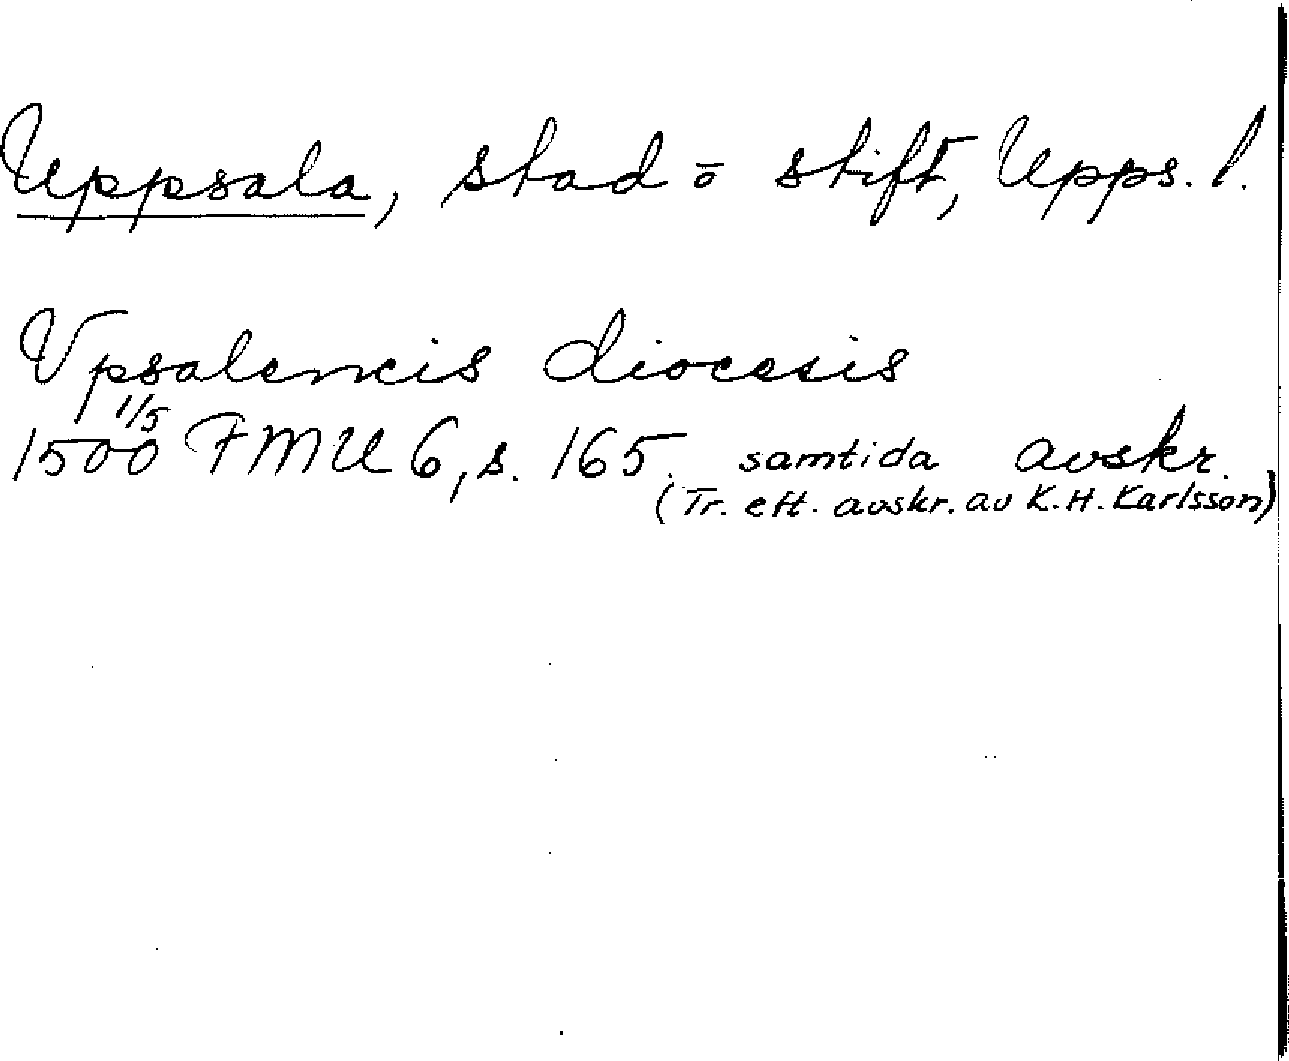 Uppsala, stad o stift, Upps. l.
Vpsalencis diocesis
1/5
1500 FMU 6, s. 165. samtida avskr.
(Tr. eft. avskr. av K.H. Karlsson)